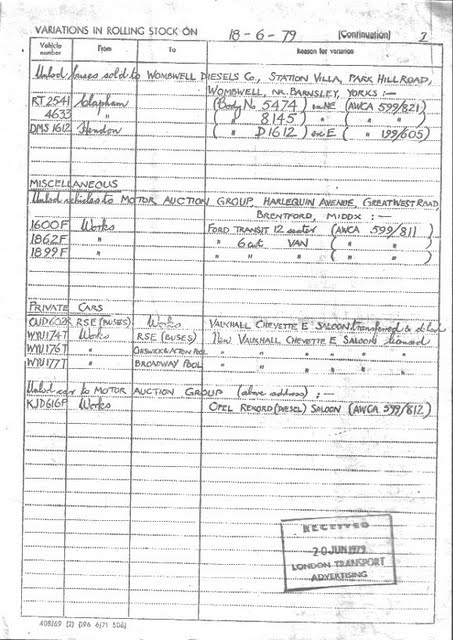 VARIATIONS IN ROLLING STOCK ON 18-6-79 (Continuation) 2
Vehicle number From To Reason for variation
Unlsd. buses sold to WOMBWELL DIESELS Co., STATION VILLA, PARK HILL ROAD,
WOMBWELL, NR. BARNSLEY, YORKS :—
RT 2541 Clapham (Body No 5474) on NE (AWCA 599/821)
4633 " ( " 8145) " ( " " )
DMS 1612 Hendon ( " D1612) on E ( " 199/605)
MISCELLANEOUS
Unlsd vehicles to MOTOR AUCTION GROUP, HARLEQUIN AVENUE, GREAT WEST ROAD
BRENTFORD, MIDDX :—
1600F Works FORD TRANSIT 12 seater (AWCA 599/811)
1862F " " 6 cwt VAN ( " " )
1899F " " " " ( " " )
PRIVATE CARS
RSE (BUSES) Works VAUXHALL CHEVETTE E SALOON transferred &
WYU174T Works RSE (BUSES) New VAUXHALL CHEVETTE E SALOON licensed
WYU175T " CHISWICK & ACTON POOL " " " " "
WYU177T " BROADWAY POOL " " " " "
Unlsd car to MOTOR AUCTION GROUP (above address) :—
KJD616P Works OPEL REKORD (DIESEL) SALOON (AWCA 599/812)
RECEIVED
20 JUN 1979
LONDON TRANSPORT
ADVERTISING